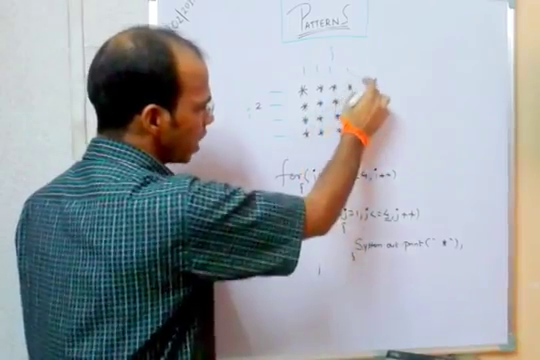 PATTERNS
2
* * * *
* * *
* * *
* * *
for(i =4,i++)
{
j=1,j<=4,j++)
{
System.out.print(" *");